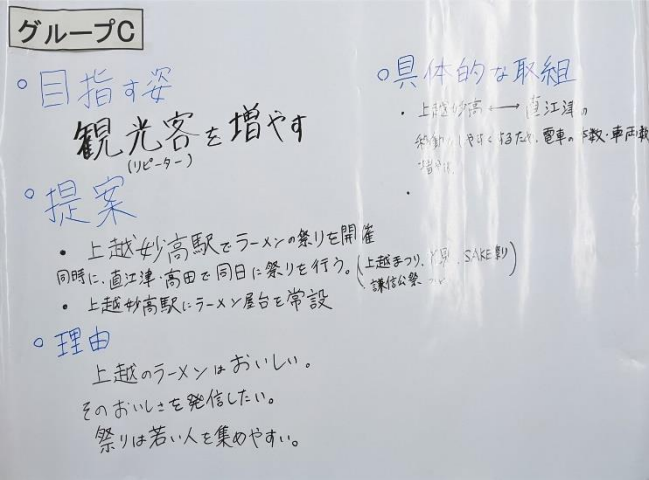 グループC
○目指す姿
観光客を増やす
(リピーター)
○提案
・上越妙高駅でラーメンの祭りを開催
同時に、直江津・高田で同日に祭りを行う。(上越まつり、SAKE祭り
謙信公祭)
・上越妙高駅にラーメン屋台を常設
○理由
上越のラーメンはおいしい。
そのおいしさを発信したい。
祭りは若い人を集めやすい。
○具体的な取組
・上越妙高⟷直江津の
しやすくするため、電車の本数・車両数
増やす
・